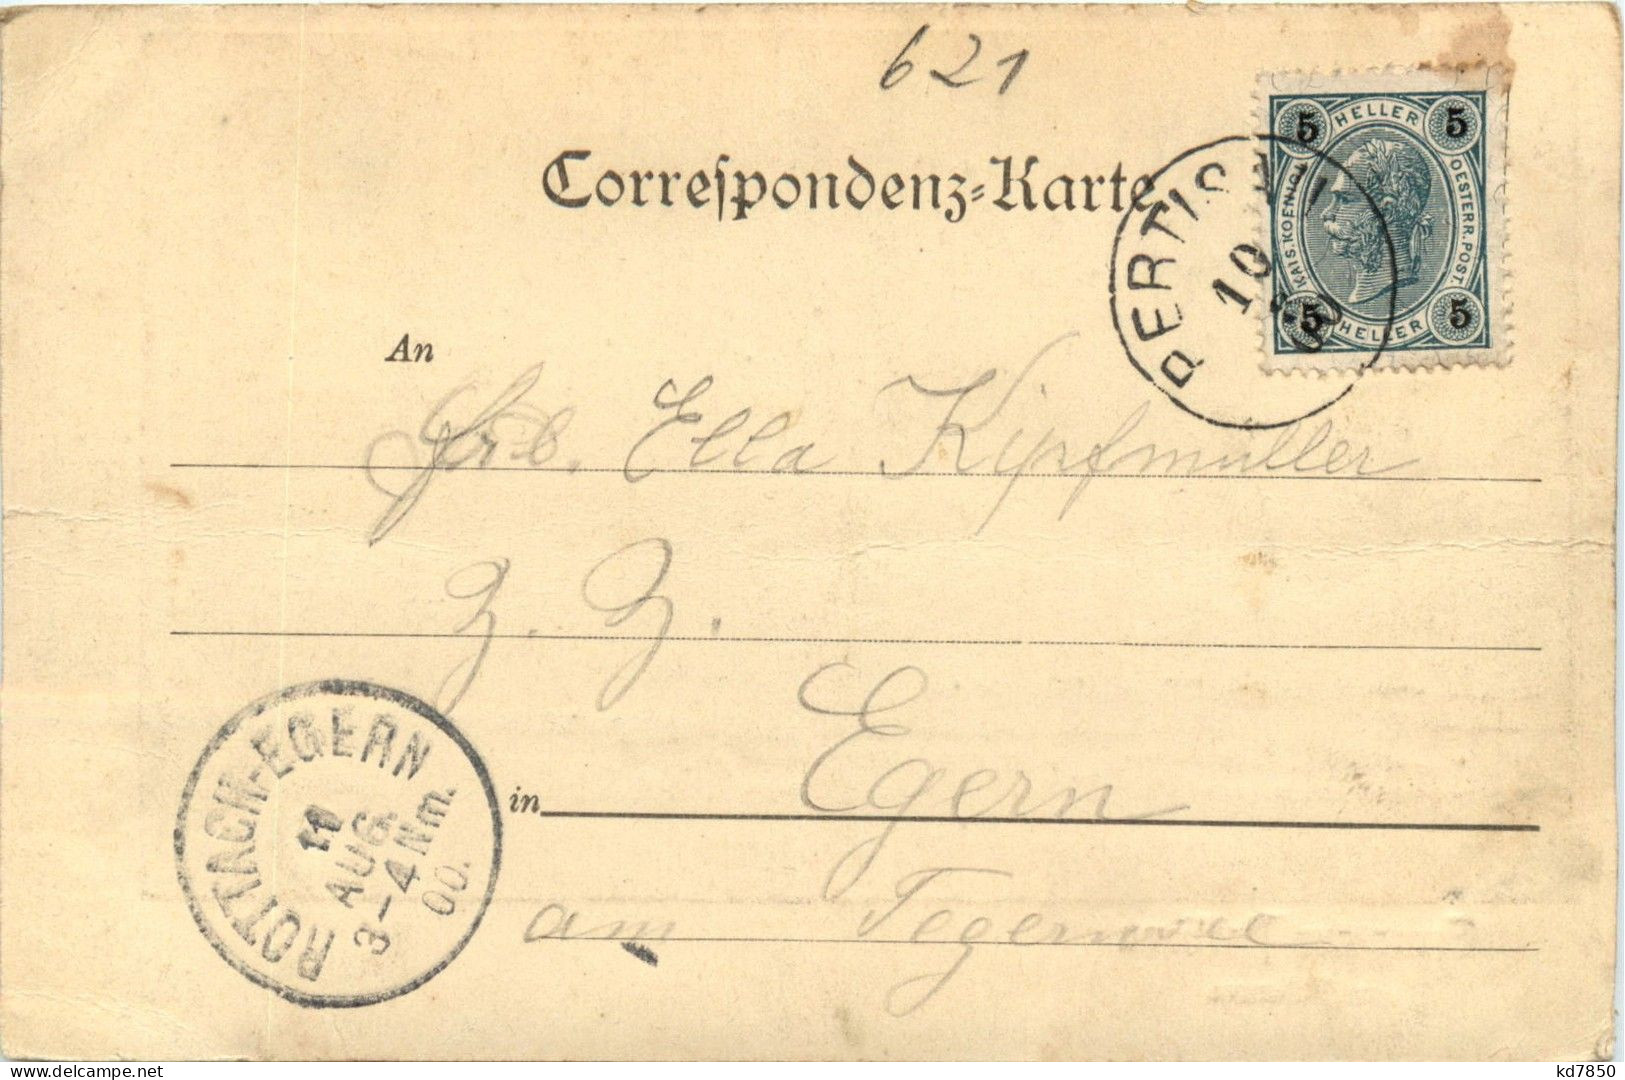 621
Correspondenz-Karte
5 HELLER 5
KAIS. KOENIGL.
OESTERR. POST
5 HELLER 5
PERTISAU
10
8
00
An
Frl. Ella Kipfmüller
z. Z.
in Egern
am Tegernsee
ROTTACH-EGERN
11
AUG.
3-4 Nm.
00.
www.delcampe.net
kd7850